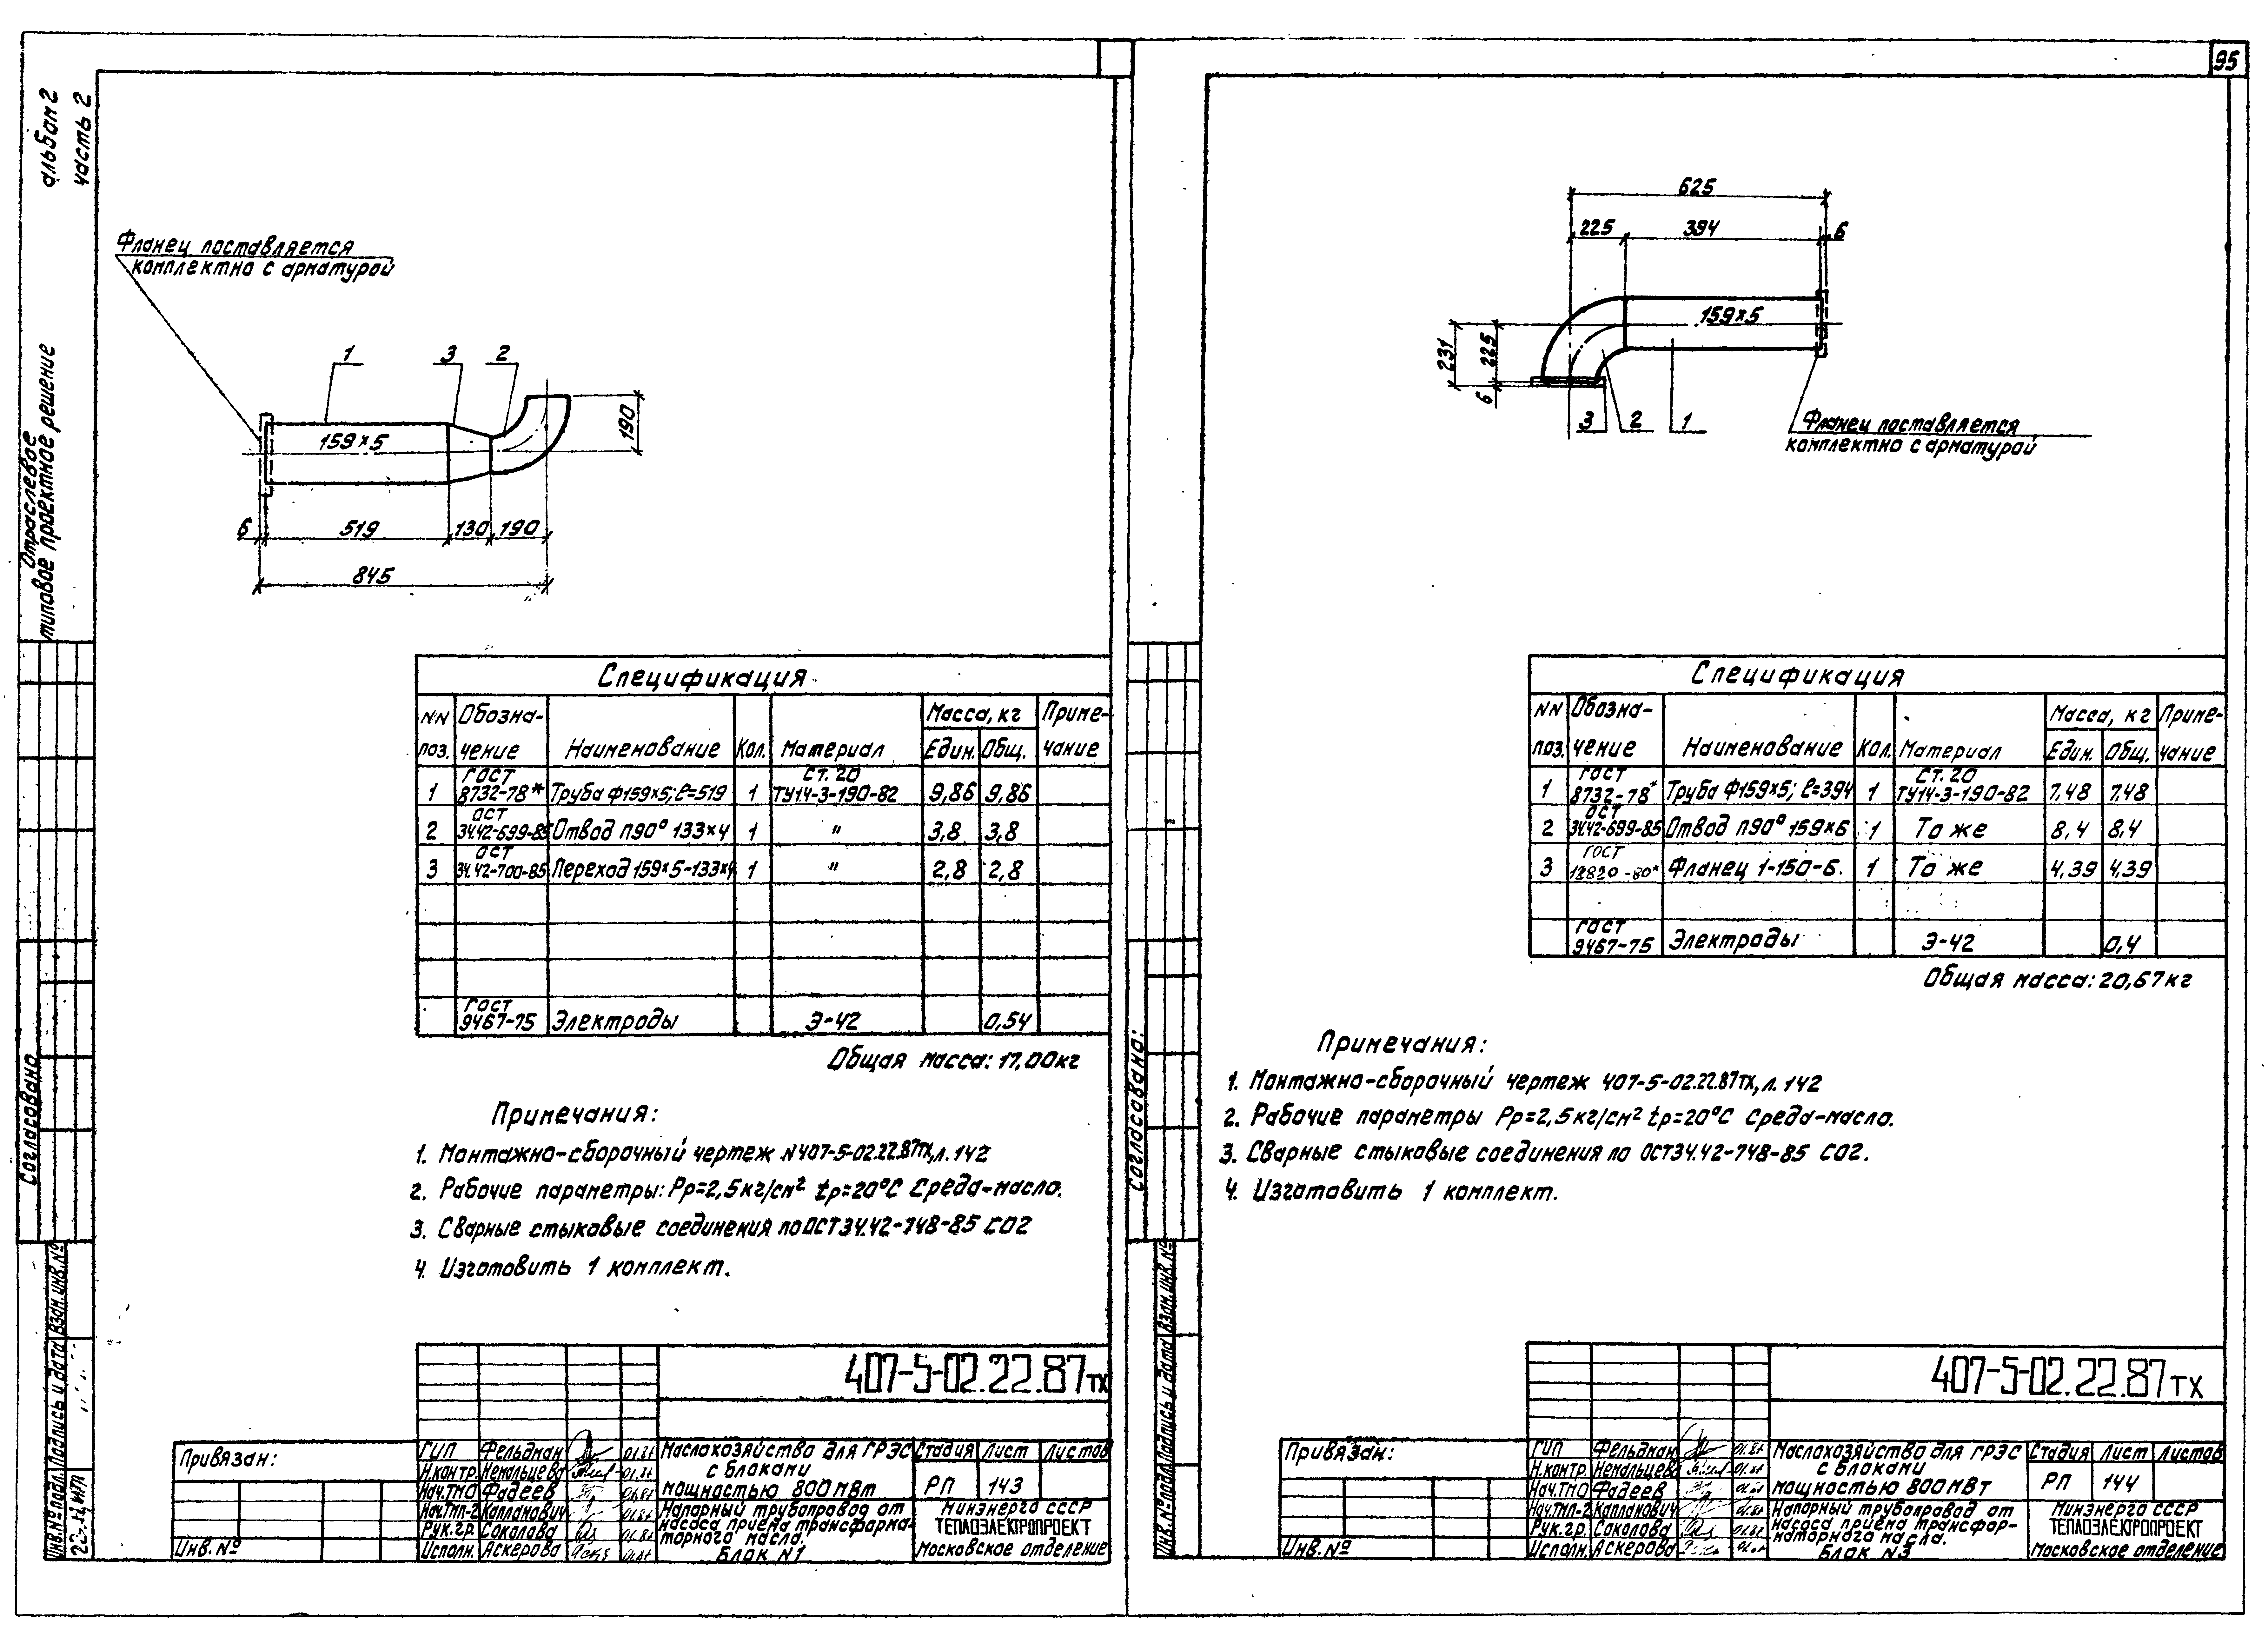 95
альбом 2
часть 2
Отраслевое
типовое проектное решение
Согласовано
Инв.№ подл.
Подпись и дата
Взам.инв.№
Фланец поставляется
комплектно с арматурой
1
3
2
159×5
190
6
519
130
190
845
Спецификация
NN поз.
Обозна-чение
Наименование
Кол.
Материал
Масса, кг
Един.
Общ.
Приме-чание
1 ГОСТ 8732-78* Труба Ф159×5; ℓ=519 1 Ст.20 ТУ14-3-190-82 9,86 9,86
2 ОСТ 34.42-699-85 Отвод П90° 133×4 1 " 3,8 3,8
3 ОСТ 34.42-700-85 Переход 159×5-133×4 1 " 2,8 2,8
ГОСТ 9467-75 Электроды Э-42 0,54
Общая масса: 17,00кг
Примечания:
1. Монтажно-сборочный чертеж N407-5-02.22.87ТХ,л.142
2. Рабочие параметры: Рр=2,5кг/см² tр=20°С Среда-масло.
3. Сварные стыковые соединения по ОСТ34.42-748-85 С02
4. Изготовить 1 комплект.
407-5-02.22.87тх
Привязан:
Инв.№
ГИП Фельдман 01.87
Н.контр. Немальцева 01.87
Нач.ТМО Фадеев 01.87
Нач.ТМП-2 Капланович 01.87
Рук.гр. Соколова 01.87
Исполн. Аскерова 01.87
Маслохозяйство для ГРЭС
с блоками
мощностью 800МВт
Стадия Лист Листов
РП 143
Напорный трубопровод от
насоса приема трансформа-
торного масла.
Блок N1
Минэнерго СССР
ТЕПЛОЭЛЕКТРОПРОЕКТ
Московское отделение
625
225
394
6
159×5
231
225
6
3
2
1
Фланец поставляется
комплектно с арматурой
Спецификация
NN поз.
Обозна-чение
Наименование
Кол.
Материал
Масса, кг
Един.
Общ.
Приме-чание
1 ГОСТ 8732-78* Труба Ф159×5; ℓ=394 1 Ст.20 ТУ14-3-190-82 7.48 7.48
2 ОСТ 34.42-699-85 Отвод П90° 159×6 1 То же 8,4 8.4
3 ГОСТ 12820-80* Фланец 1-150-6. 1 То же 4,39 4,39
ГОСТ 9467-75 Электроды Э-42 0,4
Общая масса: 20,67кг
Примечания:
1. Монтажно-сборочный чертеж 407-5-02.22.87тх,л.142
2. Рабочие параметры Рр=2,5кг/см² tр=20°С Среда-масло.
3. Сварные стыковые соединения по ОСТ34.42-748-85 С02.
4. Изготовить 1 комплект.
Согласовано:
Инв.№ подл.
Подпись и дата
Взам.инв.№
407-5-02.22.87тх
Привязан:
Инв.№
ГИП Фельдман 01.87
Н.контр. Немальцева 01.87
Нач.ТМО Фадеев 01.87
Нач.ТМП-2 Капланович 01.87
Рук.гр. Соколова 01.87
Исполн. Аскерова 01.87
Маслохозяйство для ГРЭС
с блоками
мощностью 800МВт
Стадия Лист Листов
РП 144
Напорный трубопровод от
насоса приема трансфор-
маторного масла.
Блок N3
Минэнерго СССР
ТЕПЛОЭЛЕКТРОПРОЕКТ
Московское отделение